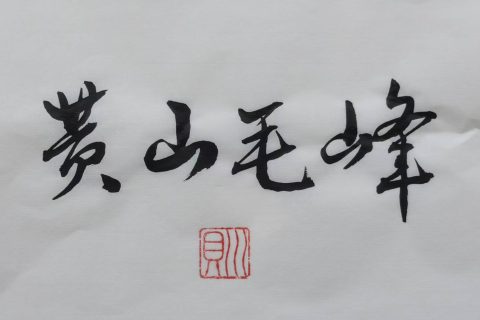 黄山毛峰